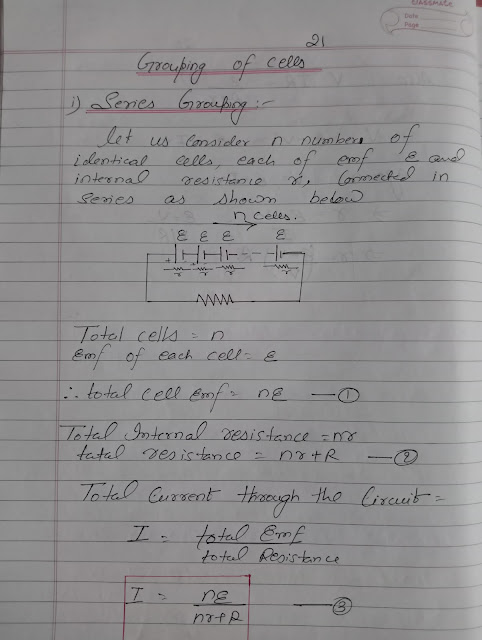 CLASSMATE
Date
Page
21
Grouping of cells
i) Series Grouping :-
let us consider n numbers of
identical cells, each of emf ε and
internal resistance r, connected in
series as shown below
n cells.
ε ε ε ε
+ +
r r r r
Total cells = n
emf of each cell = ε
∴ total cell emf = nε —①
Total Internal resistance = nr
total resistance = nr+R —②
Total Current through the Circuit =
I = total Emf
total Resistance
I = nε
nr+R —③